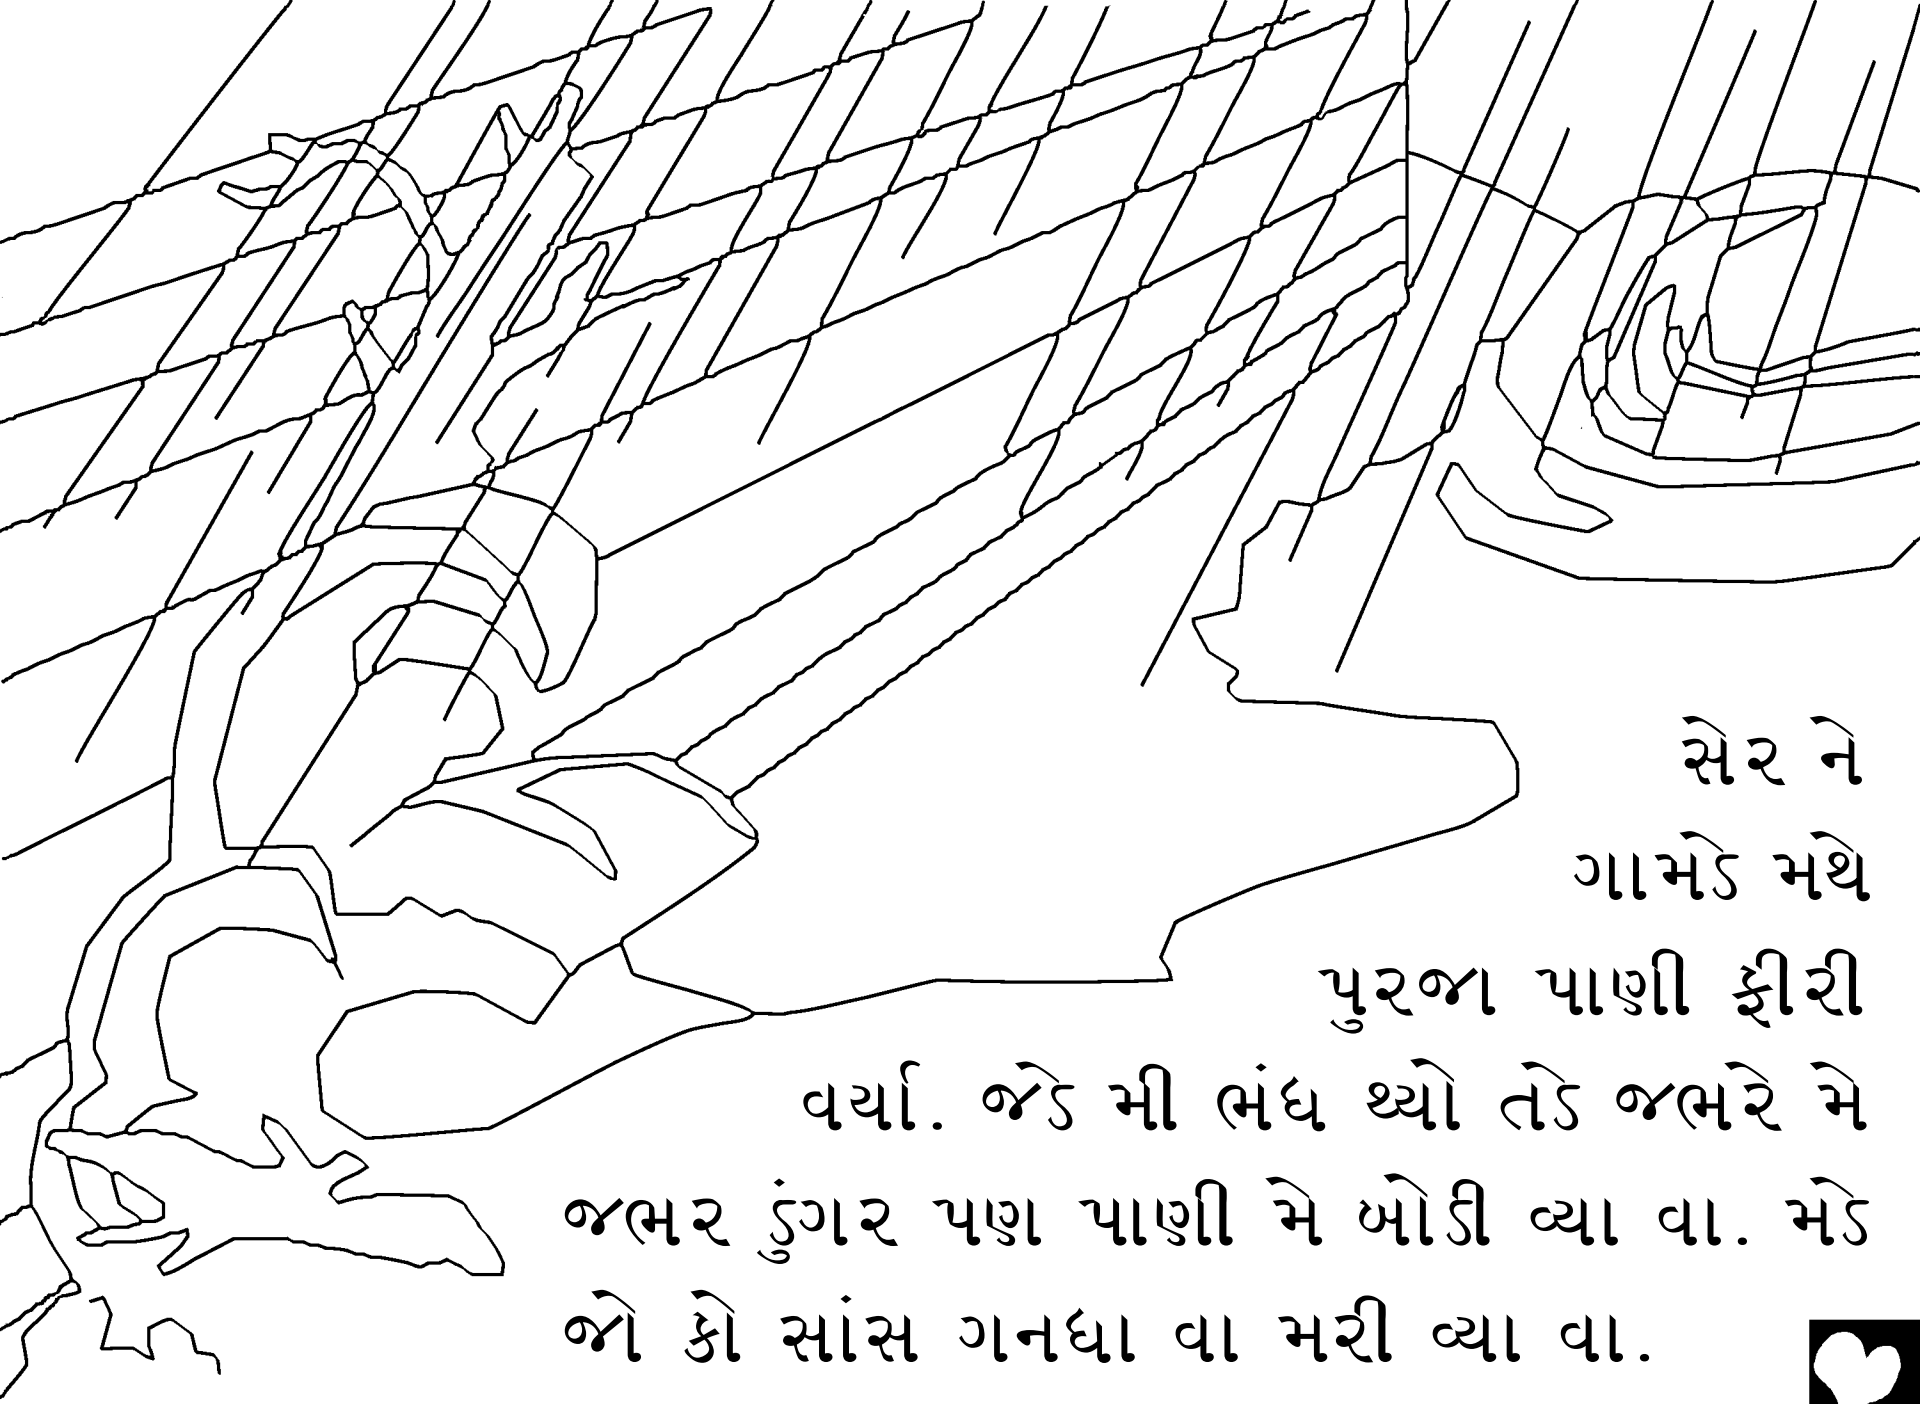 સેર ને
ગામડે મથે
પુરજા પાણી ફીરી
વર્યા. જડે મી ભંધ થ્યો તડે જભરે મે
જભર ડુંગર પણ પાણી મે બોડી વ્યા વા. મડે
જો કો સાંસ ગનધા વા મરી વ્યા વા.